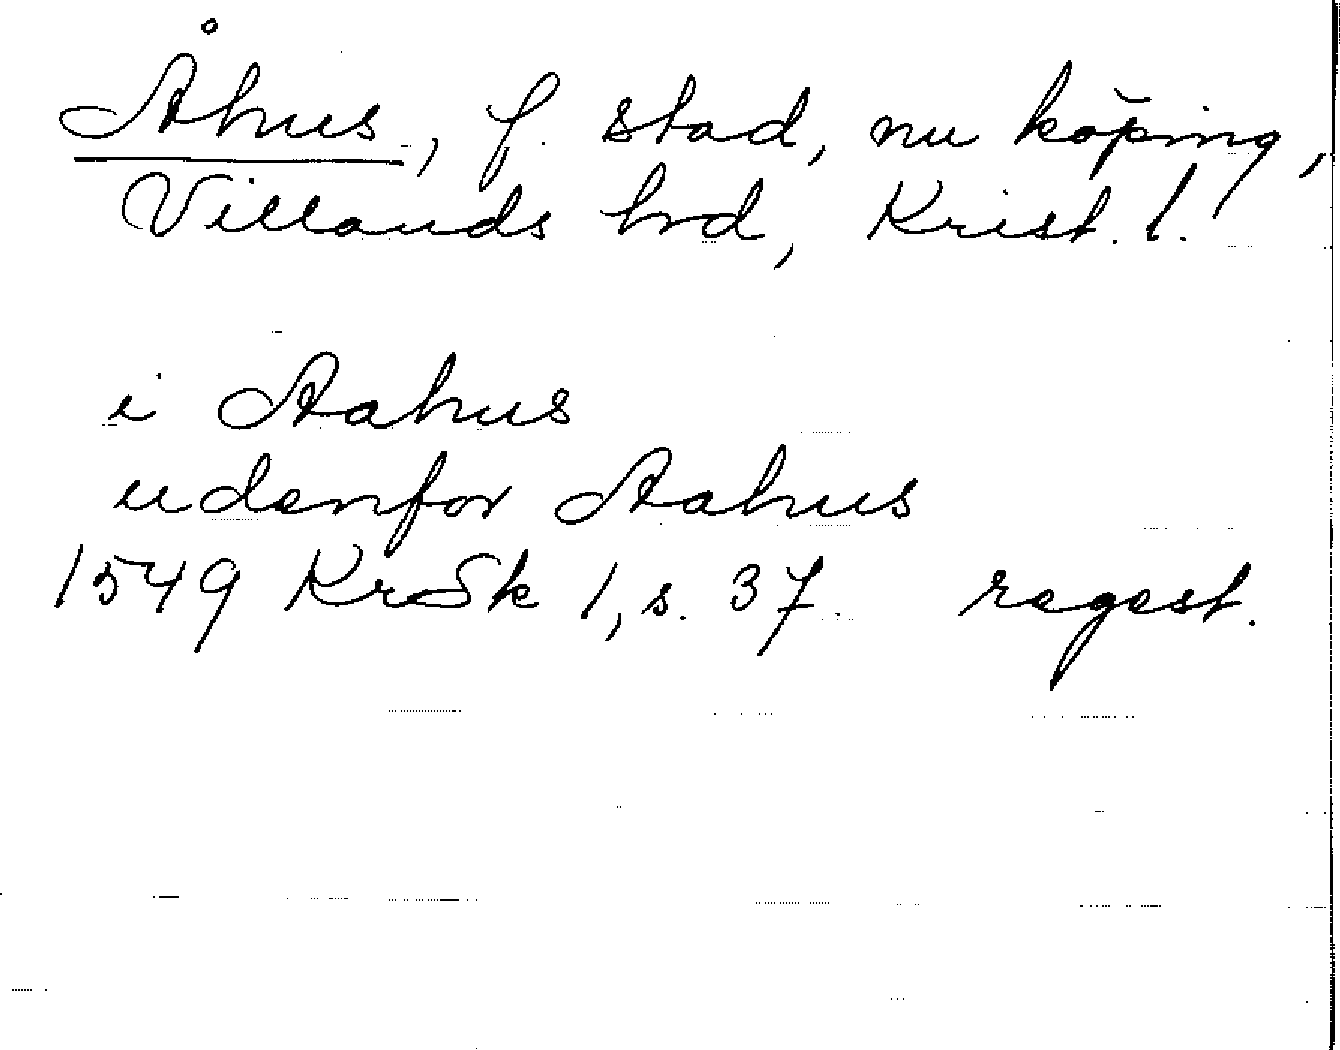 Åhus, f. stad, nu köping,
Villands hd, Krist. l.
i Aahus
udenfor Aahus
1549 KrSk 1, s. 37 regest.